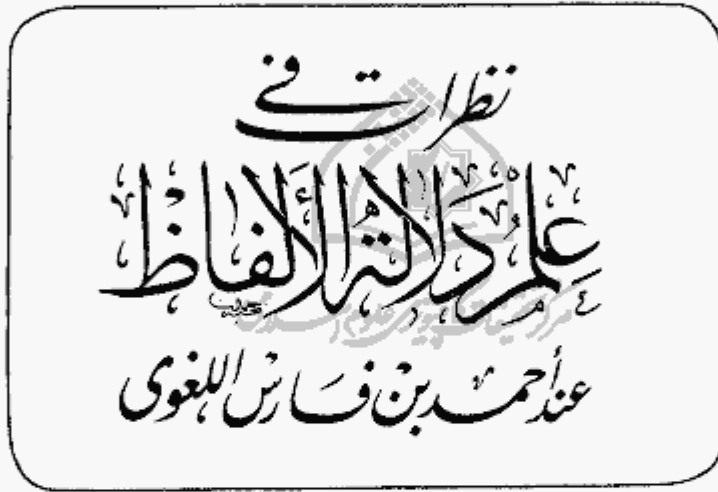 نظرات في
عِلْمِ دَلَالَةِ الأَلفَاظِ
عند أحمد بن فَارِس اللغوى